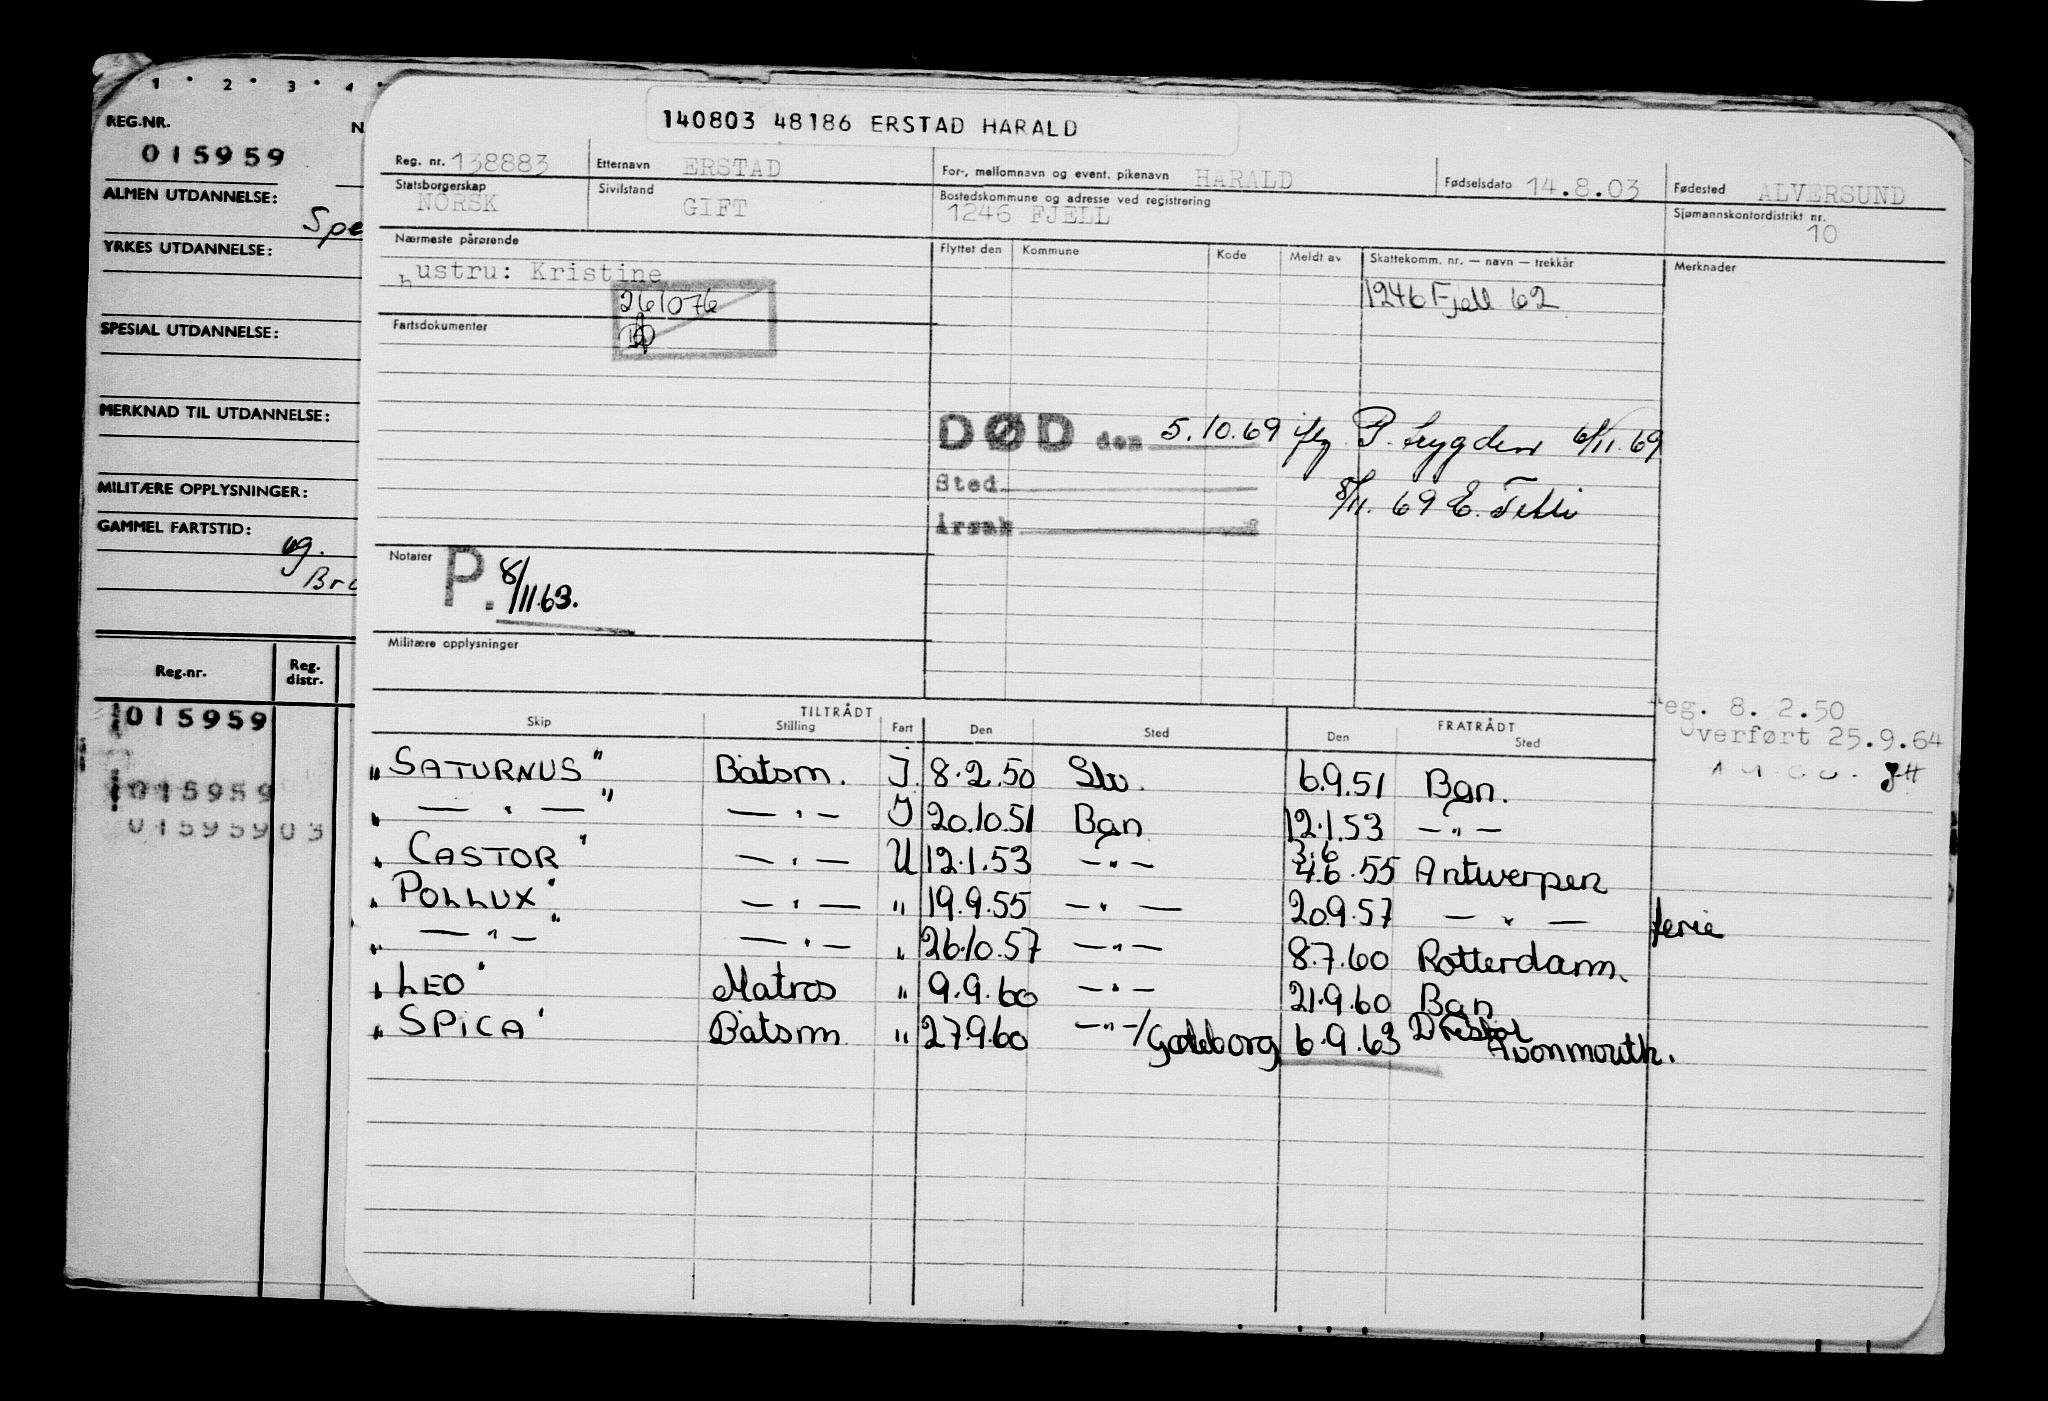 1 2 3 4
REG.NR. N
015959
ALMEN UTDANNELSE:
Spe
YRKES UTDANNELSE:
SPESIAL UTDANNELSE:
MERKNAD TIL UTDANNELSE:
MILITÆRE OPPLYSNINGER:
GAMMEL FARTSTID:
og.
Bru
Reg.nr. Reg. distr.
015959
015959
01595903
140803 48186 ERSTAD HARALD
Reg. nr. 138883 Etternavn ERSTAD For-, mellomnavn og event. pikenavn HARALD Fødselsdato 14.8.03 Fødested ALVERSUND
Statsborgerskap NORSK Sivilstand GIFT Bostedskommune og adresse ved registrering 1246 FJELL Sjømannskontordistrikt nr. 10
Nærmeste pårørende Flyttet den Kommune Kode Meldt av Skattekomm. nr. — navn — trekkår Merknader
hustru: Kristine
261076
1246 Fjell 62
Fartsdokumenter
DØD den 5.10.69 ifg P. Trygden 6/11.69
Sted 8/11. 69 E.
Årsak
Notater P. 8/11.63.
Militære opplysninger
reg. 8. 2.50
Overført 25.9.64
TILTRÅDT FRATRÅDT
Skip Stilling Fart Den Sted Den Sted
"SATURNUS" Båtsm. J. 8.2.50 Slv. 6.9.51 Bgn.
" — " — " — " — J 20.10.51 Bgn 12.1.53 — " —
"CASTOR" — " — U 12.1.53 — " — 3.6 4.6.55 Antwerpen
"POLLUX" — " — " 19.9.55 — " — 20.9.57 — " — ferie
" — " — " — " — " 26.10.57 — " — 8.7.60 Rotterdam.
"LEO" Matros " 9.9.60 — " — 21.9.60 Bgn
"SPICA" Båtsm " 27.9.60 — " —/Gøteborg 6.9.63 Bristol Avonmouth.